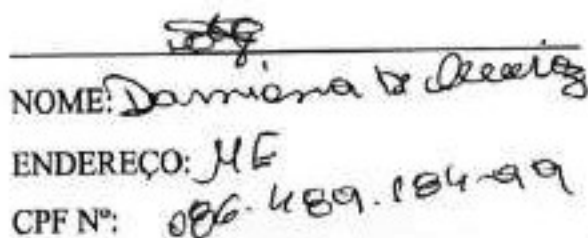 NOME: Damiana de Oliveira
ENDEREÇO: ME
CPF Nº: 086.489.184-99